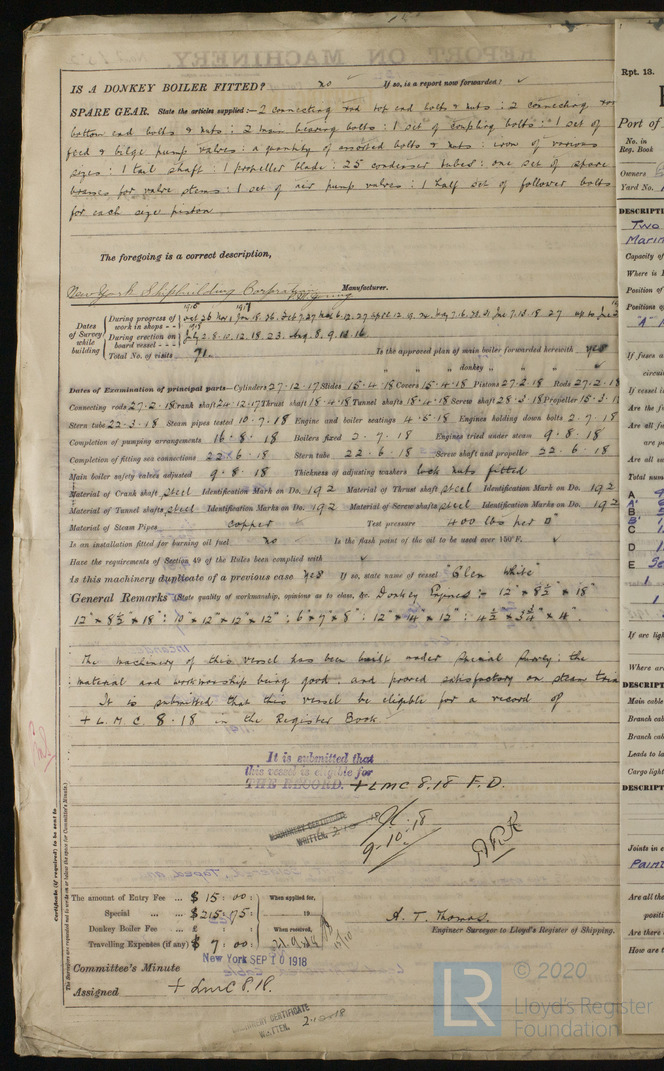 IS A DONKEY BOILER FITTED? no If so, is a report now forwarded? ✓
SPARE GEAR. State the articles supplied:— 2 connecting rod top end bolts & nuts : 2 connecting rod
bottom end bolts & nuts : 2 main bearing bolts : 1 set of coupling bolts : 1 set of
feed & bilge pump valves : a quantity of assorted bolts & nuts : iron of various
sizes : 1 tail shaft : 1 propeller blade : 25 condenser tubes : one set of spare
brasses for valve stems : 1 set of air pump valves : 1 half set of follower bolts
for each size piston
The foregoing is a correct description,
New York Shipbuilding Corporation Manufacturer.
Dates of Survey while building
During progress of work in shops - -
During erection on board vessel - - - July 2. 8. 10. 12. 18. 23. Aug. 8. 9. 13. 16
Total No. of visits 71.
Is the approved plan of main boiler forwarded herewith yes
" " " donkey " " " ✓
Dates of Examination of principal parts—Cylinders 27.12.17 Slides 15.4.18 Covers 15.4.18 Pistons 27.2.18 Rods 27.2.18
Connecting rods 27.2.18 Crank shaft 24.12.17 Thrust shaft 18.4.18 Tunnel shafts 18.4.18 Screw shaft 28.3.18 Propeller 15.3.1
Stern tube 22.3.18 Steam pipes tested 10.7.18 Engine and boiler seatings 4.5.18 Engines holding down bolts 2.7.18
Completion of pumping arrangements 16.8.18 Boilers fixed 2.7.18 Engines tried under steam 9.8.18
Completion of fitting sea connections 22.6.18 Stern tube 22.6.18 Screw shaft and propeller 22.6.18
Main boiler safety valves adjusted 9.8.18 Thickness of adjusting washers lock nuts fitted
Material of Crank shaft steel Identification Mark on Do. 192 Material of Thrust shaft steel Identification Mark on Do. 192
Material of Tunnel shafts steel Identification Marks on Do. 192 Material of Screw shafts steel Identification Marks on Do. 192
Material of Steam Pipes copper Test pressure 400 lbs per □"
Is an installation fitted for burning oil fuel no Is the flash point of the oil to be used over 150°F. ✓
Have the requirements of Section 49 of the Rules been complied with ✓
Is this machinery duplicate of a previous case Yes If so, state name of vessel "Glen White"
General Remarks (State quality of workmanship, opinions as to class, &c. Donkey Engines :- 12" × 8½" × 18"
12" × 8½" × 18" : 10" × 12" × 12" × 12" : 6" × 7" × 8" : 12" × 14" × 12" : 4½" × 3¾" × 4".
The machinery of this vessel has been built under Special Survey : the
material and workmanship being good, and proved satisfactory on steam trial
It is submitted that this vessel be eligible for a record of
+ L.M.C. 8.18 in the Register Book
It is submitted that
this vessel is eligible for
THE RECORD. + LMC 8.18 F.D.
MACHINERY CERTIFICATE
WRITTEN
9.10.18
Certificate (if required) to be sent to
The amount of Entry Fee ... $ 15 : 00 : When applied for,
Special ... ... $ 215 : 75 : 19
Donkey Boiler Fee ... £ : : When received,
Travelling Expenses (if any) $ 7 : 00 :
A. T. Thomas.
Engineer Surveyor to Lloyd's Register of Shipping.
New York SEP 10 1918
Committee's Minute
Assigned + LMC 8.18.
MACHINERY CERTIFICATE
WRITTEN. 2.10.18
© 2020
LR Lloyd's Register
Foundation
Rpt. 13.
Port of
No. in
Reg. Book
Owners
Yard No.
DESCRIPTI
Two
Marin
Capacity of
Where is
Position of
Positions of
If fuses a
circui
If vessel i
Are the f
Are all fu
are p
Are all su
Total num
A
A'
B
B'
C
D
E
If are ligh
Where ar
DESCRIPT
Main cable
Branch cab
Branch cab
Leads to la
Cargo light
DESCRIPT
Joints in c
Paint
Are all the
positi
Are there
How are t